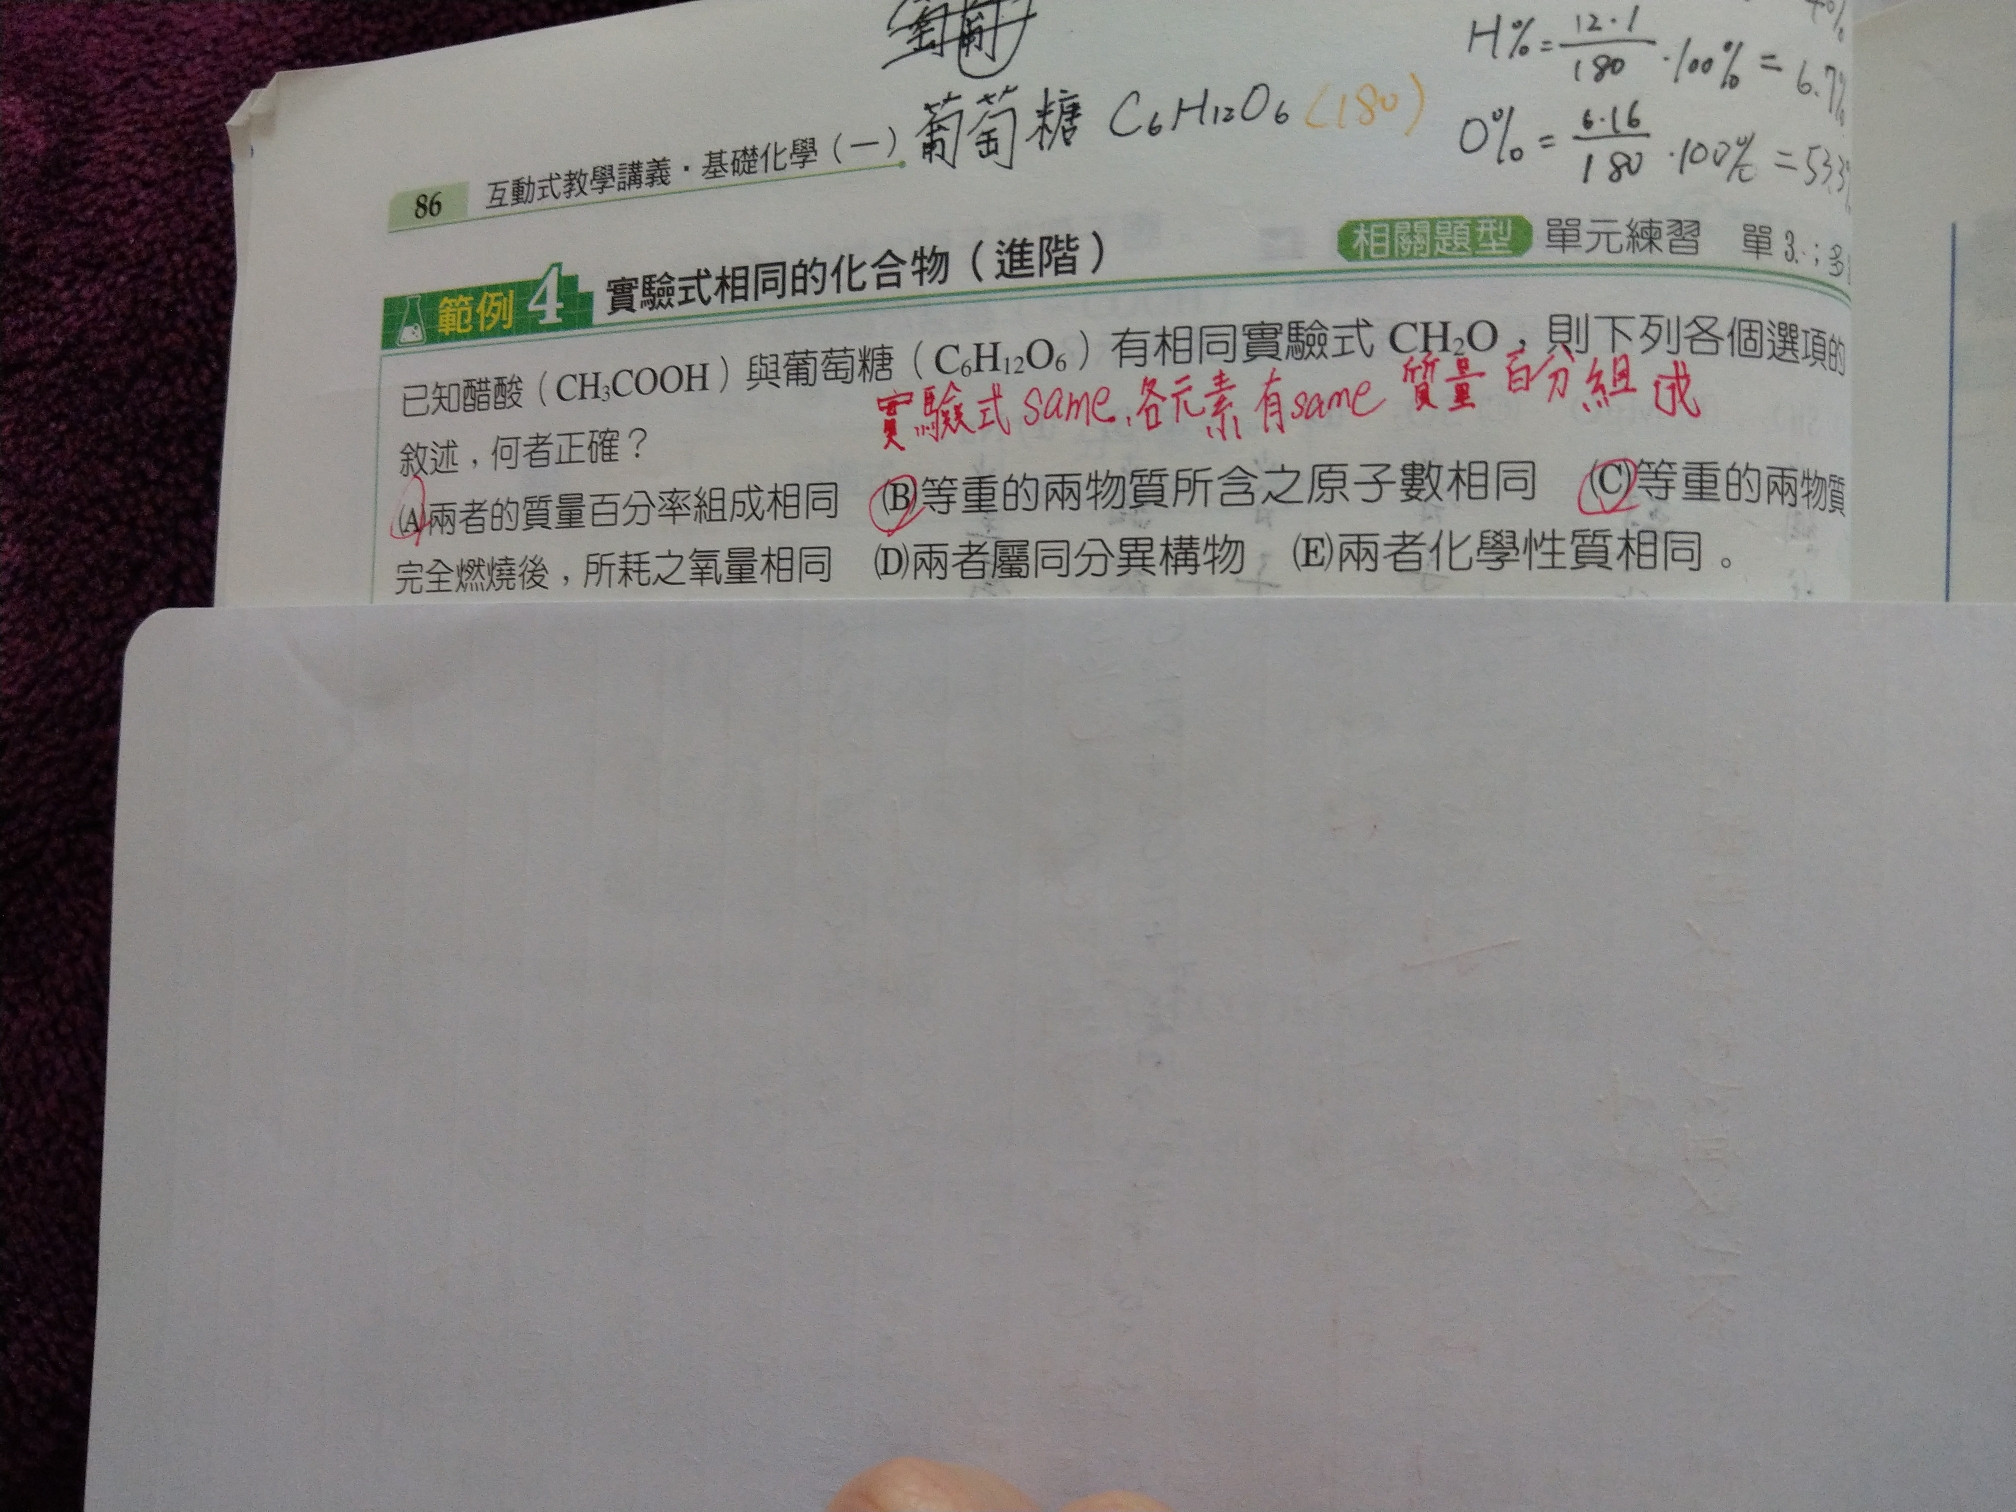 H% = 12·1/180 ·100% = 6.7%
葡萄糖 C₆H₁₂O₆ (180)
O% = 6·16/180 ·100% = 53.3%
86 互動式教學講義・基礎化學(一)
相關題型 單元練習 單3.;多
範例4 實驗式相同的化合物(進階)
已知醋酸(CH₃COOH)與葡萄糖(C₆H₁₂O₆)有相同實驗式CH₂O,則下列各個選項的
實驗式same,各元素有same質量百分組成
敘述,何者正確?
(A)兩者的質量百分率組成相同 (B)等重的兩物質所含之原子數相同 (C)等重的兩物質
完全燃燒後,所耗之氧量相同 (D)兩者屬同分異構物 (E)兩者化學性質相同。